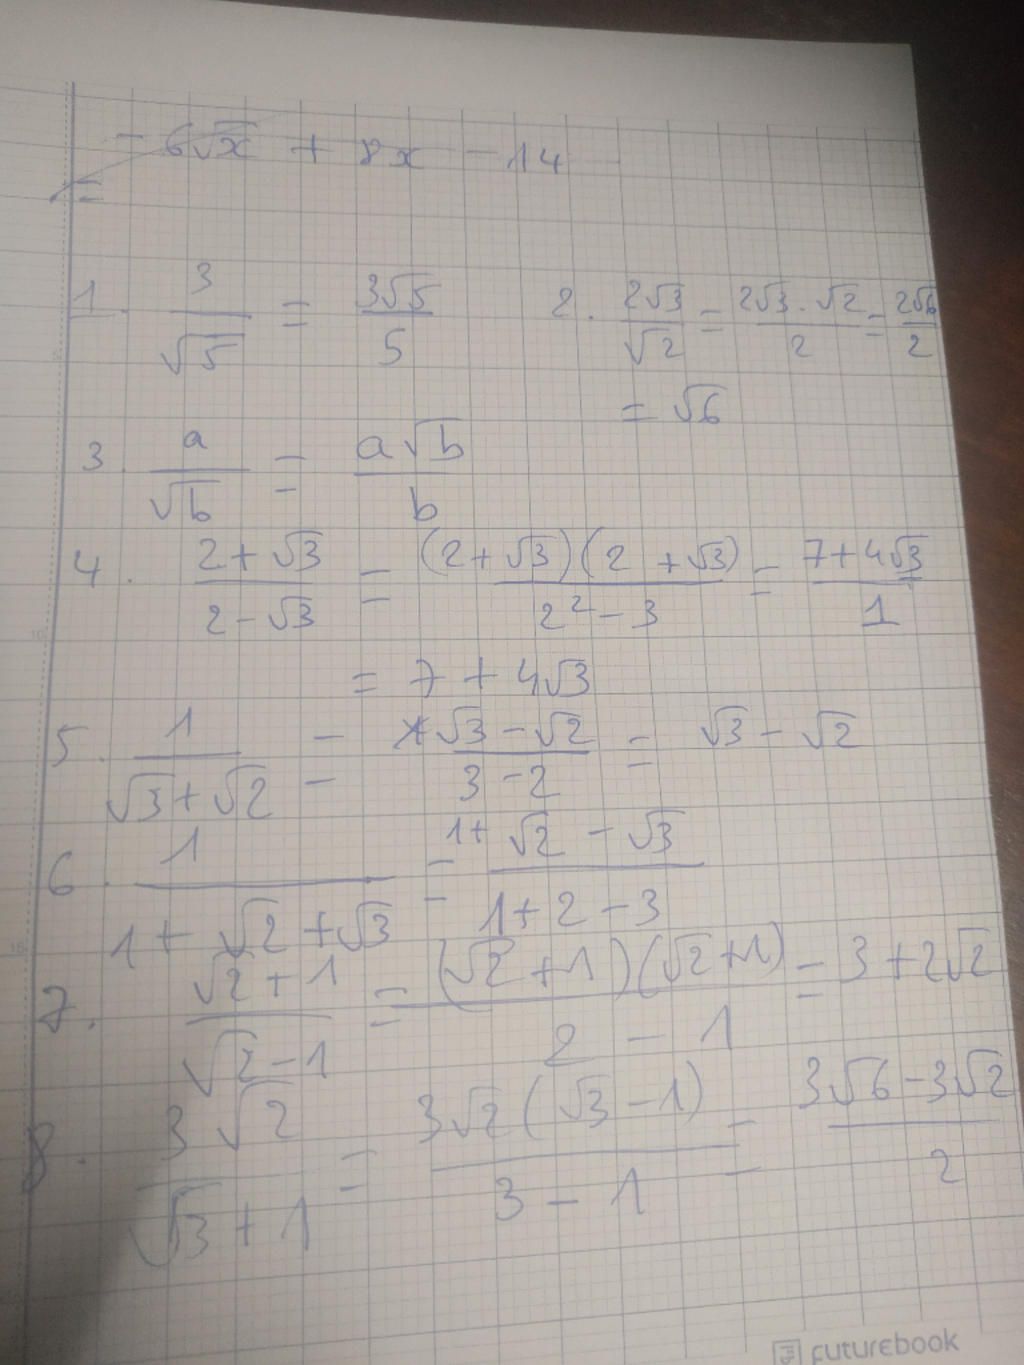 - 6√x + 8x - 14
=
1. 3/√5 = 3√5/5
2. 2√3/√2 = 2√3 · √2/2 = 2√6/2
= √6
3. a/√b = a√b/b
4. 2+√3/2-√3 = (2+√3)(2+√3)/2²-3 = 7+4√3/1
= 7 + 4√3
5. 1/√3+√2 = √3-√2/3-2 = √3 - √2
6. 1/1+√2+√3 = 1+√2-√3/1+2-3
7. √2+1/√2-1 = (√2+1)(√2+1)/2-1 = 3+2√2
8. 3√2/√3+1 = 3√2(√3-1)/3-1 = 3√6-3√2/2
FUTUREBOOK